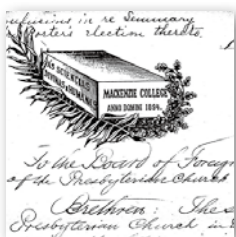 in re Seminary
Porter's election thereto.
DAS SCIENCIAS
DIVINAS E HUMANAS
MACKENZIE COLLEGE
ANNO DOMINI 1894.
To the Board of Foreign
of the Presbyterian Church
Brethren: The
Presbyterian Church in